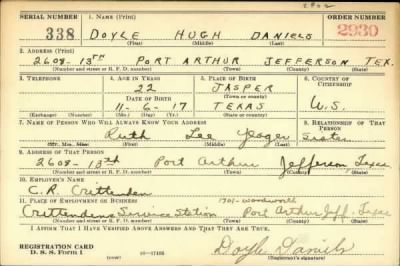 2802
SERIAL NUMBER 1. NAME (Print) ORDER NUMBER
338 DOYLE HUGH DANIELS 2930
(First) (Middle) (Last)
2. ADDRESS (Print)
2608-13TH PORT ARTHUR JEFFERSON TEX.
(Number and street or R. F. D. number) (Town) (County) (State)
3. TELEPHONE 4. AGE IN YEARS 5. PLACE OF BIRTH 6. COUNTRY OF CITIZENSHIP
22 JASPER
DATE OF BIRTH (Town or county)
11-6-17 TEXAS U.S.
(Exchange) (Number) (Mo.) (Day) (Yr.) (State or country)
7. NAME OF PERSON WHO WILL ALWAYS KNOW YOUR ADDRESS 8. RELATIONSHIP OF THAT PERSON
Ruth Lee Yeager Sister
(Mr., Mrs., Miss) (First) (Middle) (Last)
9. ADDRESS OF THAT PERSON
2608-13th Port Arthur Jefferson, Texas
(Number and street or R. F. D. number) (Town) (County) (State)
10. EMPLOYER'S NAME
C. R. Crittenden
11. PLACE OF EMPLOYMENT OR BUSINESS 1701- Woodworth
Crittendens Service Station Port Arthur Jeff. Texas
(Number and street or R. F. D. number) (Town) (County) (State)
I AFFIRM THAT I HAVE VERIFIED ABOVE ANSWERS AND THAT THEY ARE TRUE.
REGISTRATION CARD
D. S. S. Form 1 (over) Doyle Daniels
(Registrant's signature)